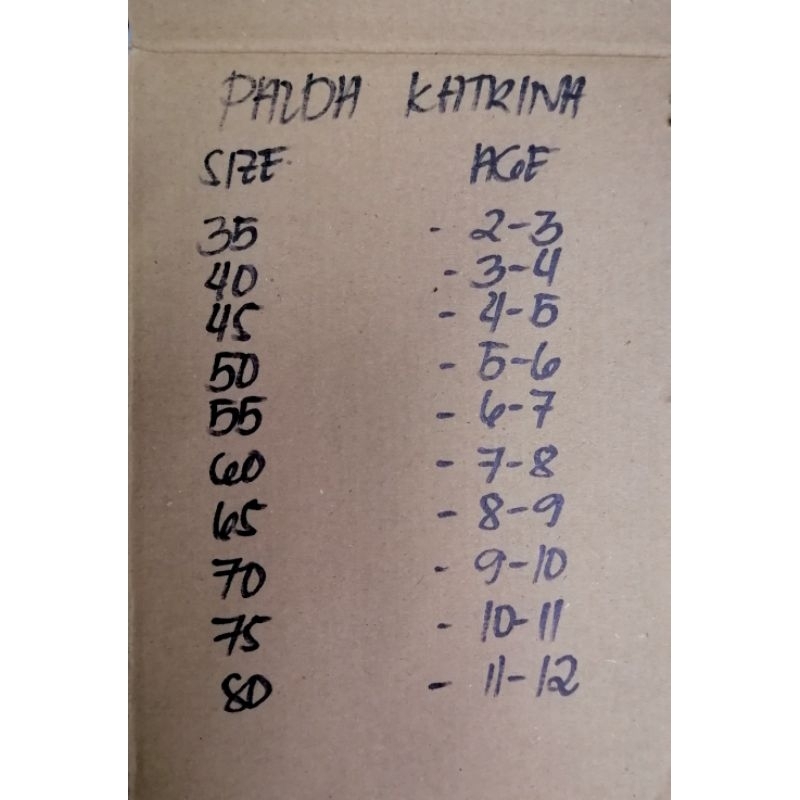 PALDA KATRINA
SIZE AGE
35 - 2-3
40 - 3-4
45 - 4-5
50 - 5-6
55 - 6-7
60 - 7-8
65 - 8-9
70 - 9-10
75 - 10-11
80 - 11-12